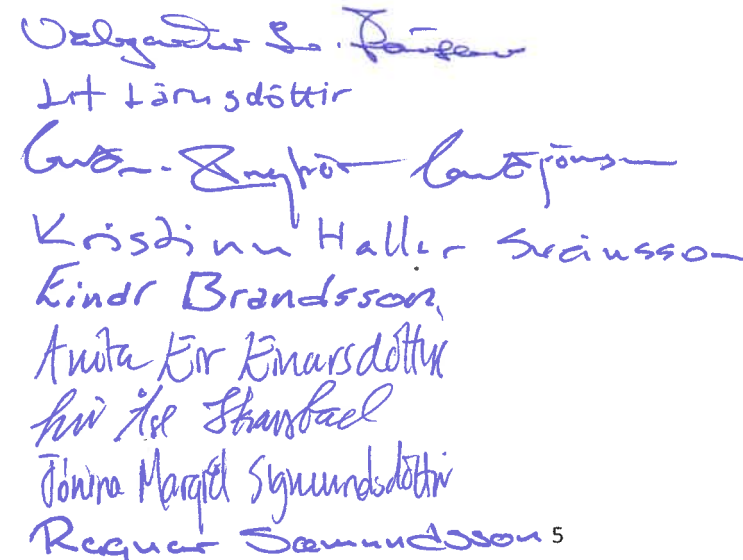 Valgarður L. Jónsson
Líf Lárusdóttir
Kristinn Hallur Sveinsson
Einar Brandsson
Aníta Eir Einarsdóttir
Liv Åse Skarstad
Jónína Margrét Sigmundsdóttir
Ragnar Sæmundsson 5